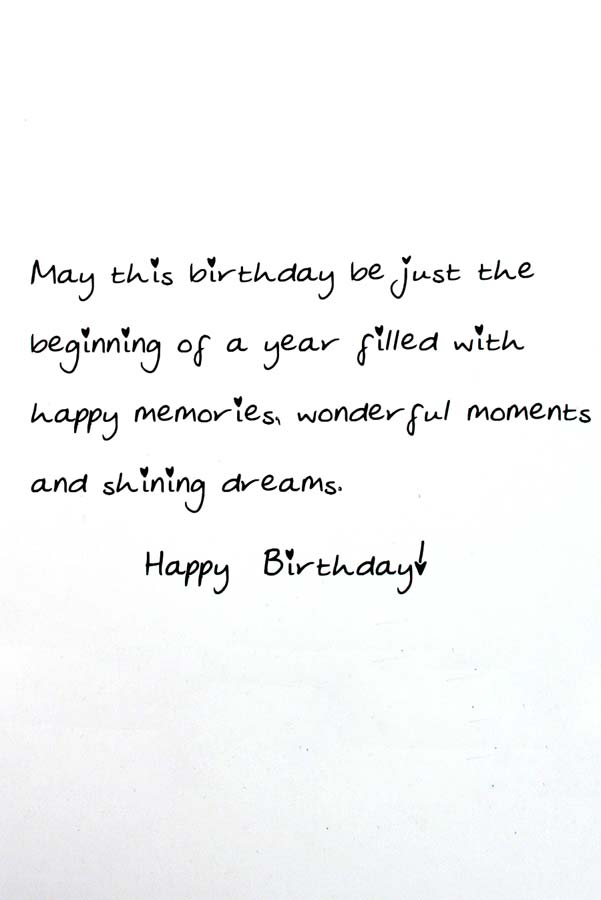 May this birthday be just the
beginning of a year filled with
happy memories, wonderful moments
and shining dreams.
Happy Birthday!